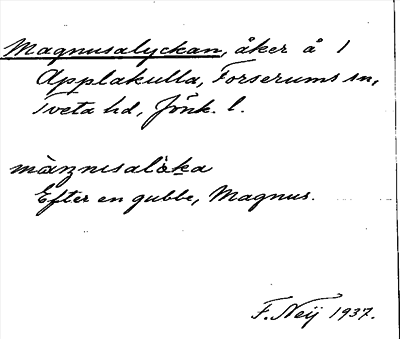 Magnusalyckan, åker å 1
Applakulla, Forserums sn,
Tveta hd, Jönk. l.
Efter en gubbe, Magnus.
F. Neij 1937.